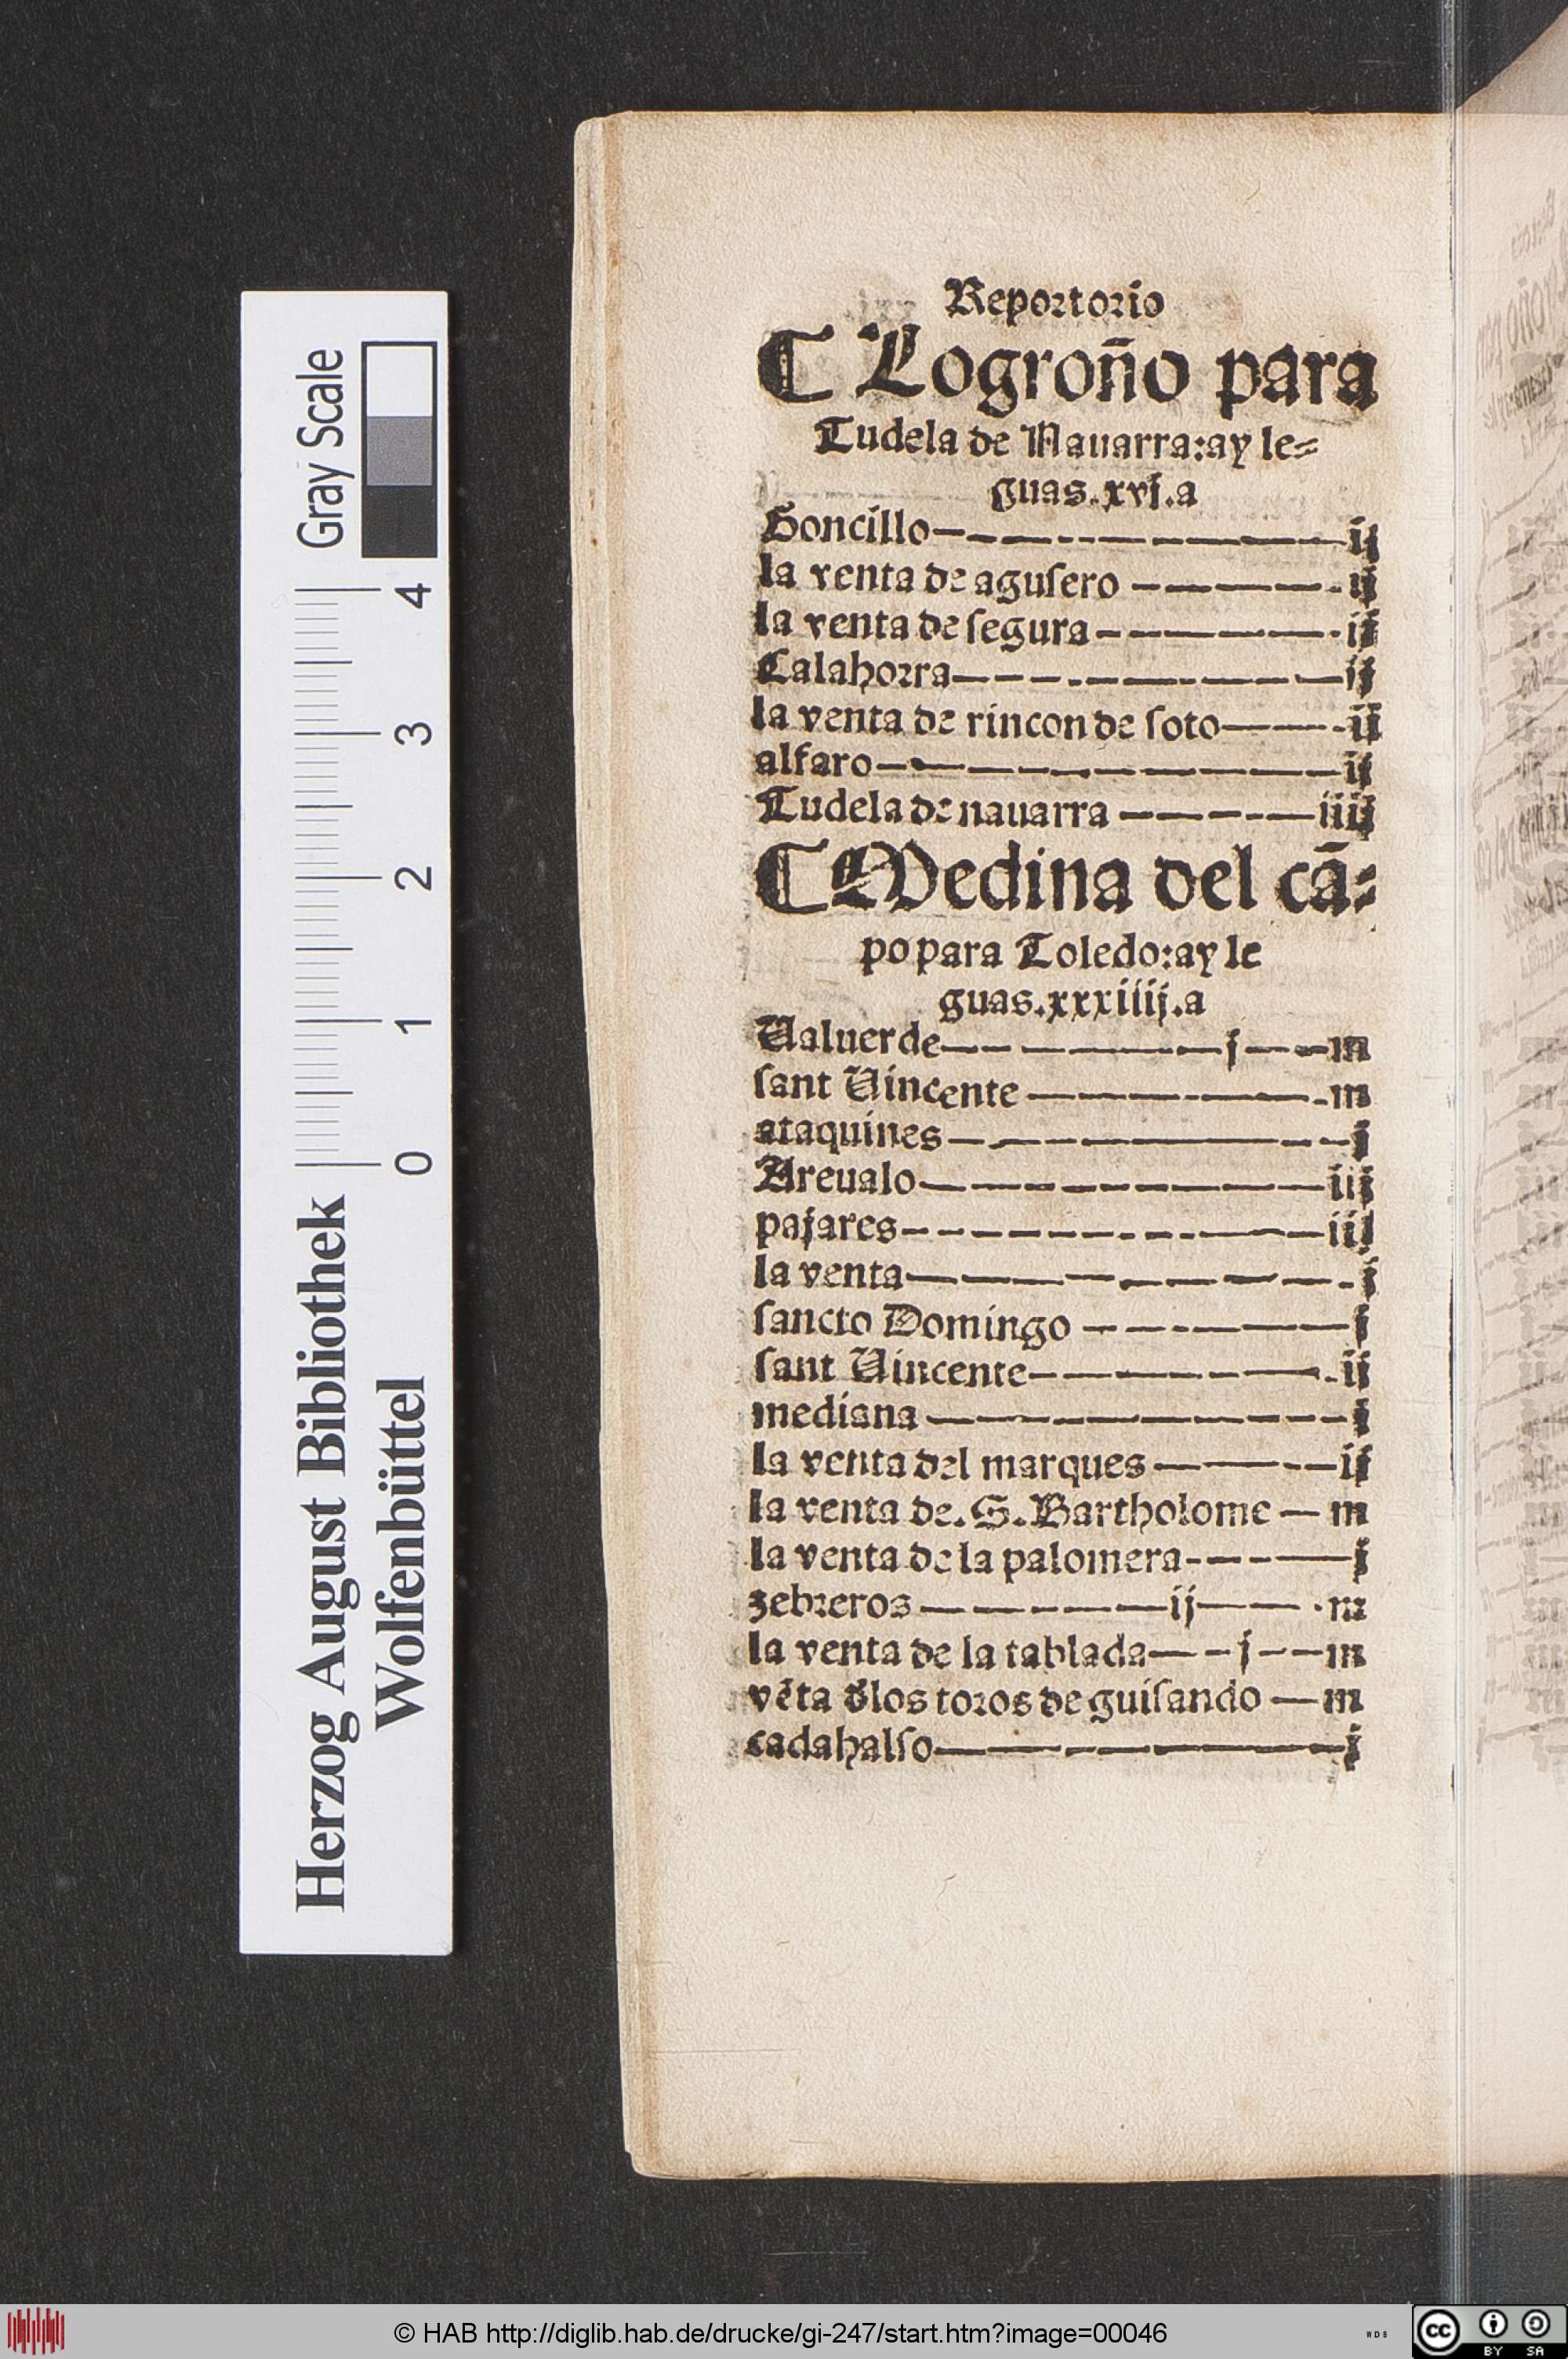 Reportorio
C Logroño para
Tudela de Nauarra:ay le=
guas.xvj.a
Goncillo ij
la venta de aguſero ij
la venta de ſegura ij
Calahorra ij
la venta de rincon de ſoto ij
alfaro ij
Tudela de nauarra iiij
C Medina del cā=
po para Toledo:ay le
guas.xxxiiij.a
Ualuerde j m
ſant Uincente m
ataquines j
Areualo iij
pajares iij
la venta j
ſancto Domingo j
ſant Uincente ij
mediana j
la venta del marques ij
la venta de.S.Bartholome m
la venta de la palomera j
zebreros ij m
la venta de la tablada j m
vēta ď los toros de guiſando m
cadahalſo j
Herzog August Bibliothek
Wolfenbüttel
0 1 2 3 4
Gray Scale
© HAB http://diglib.hab.de/drucke/gi-247/start.htm?image=00046
WDB
cc BY SA